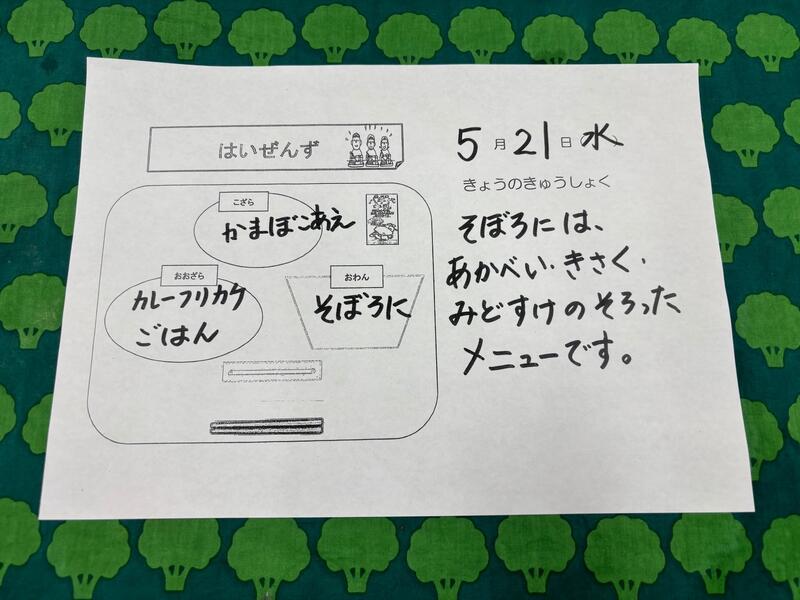 はいぜんず
こざら
かまぼこあえ
おおざら
カレーフリカケ
ごはん
おわん
そぼろに
5月21日(水)
きょうのきゅうしょく
そぼろには、
あかべい・きさく・
みどすけのそろった
メニューです。